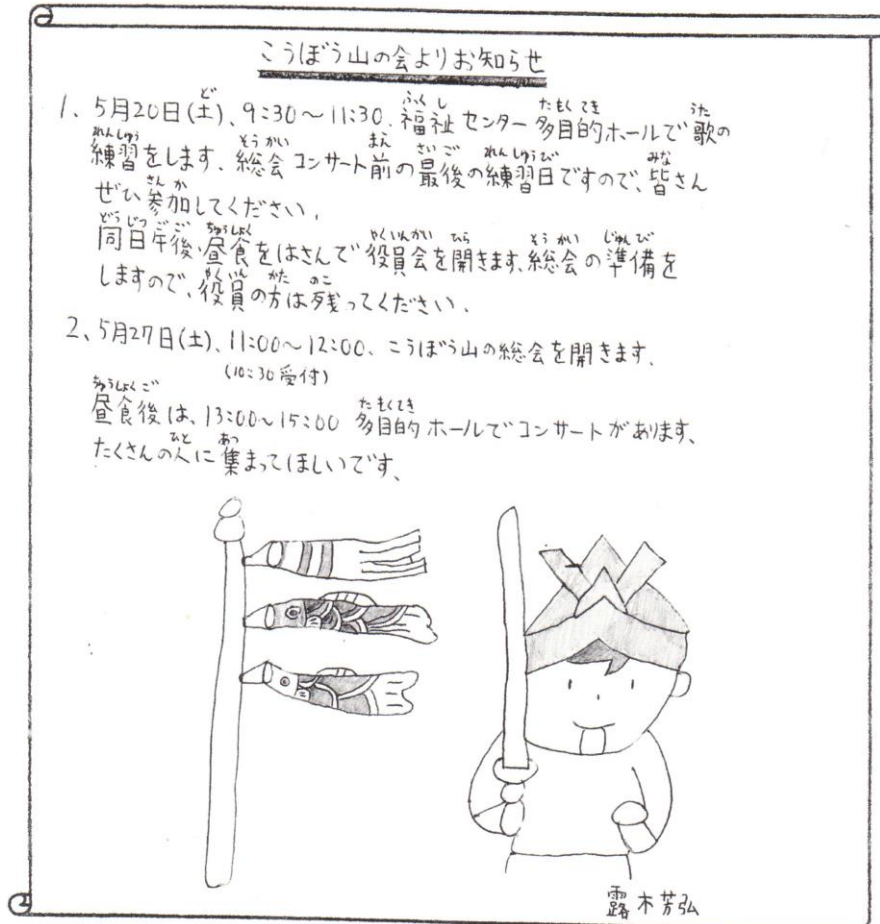 こうぼう山の会よりお知らせ
1、5月20日(土)、9:30～11:30、福祉センター多目的ホールで歌の
練習をします、総会コンサート前の最後の練習日ですので、皆さん
ぜひ参加してください、
同日午後、昼食をはさんで役員会を開きます、総会の準備を
しますので、役員の方は残ってください、
2、5月27日(土)、11:00～12:00、こうぼう山の総会を開きます、
(10:30受付)
昼食後は、13:00～15:00 多目的ホールでコンサートがあります、
たくさんの人に集まってほしいです、
露木芳弘